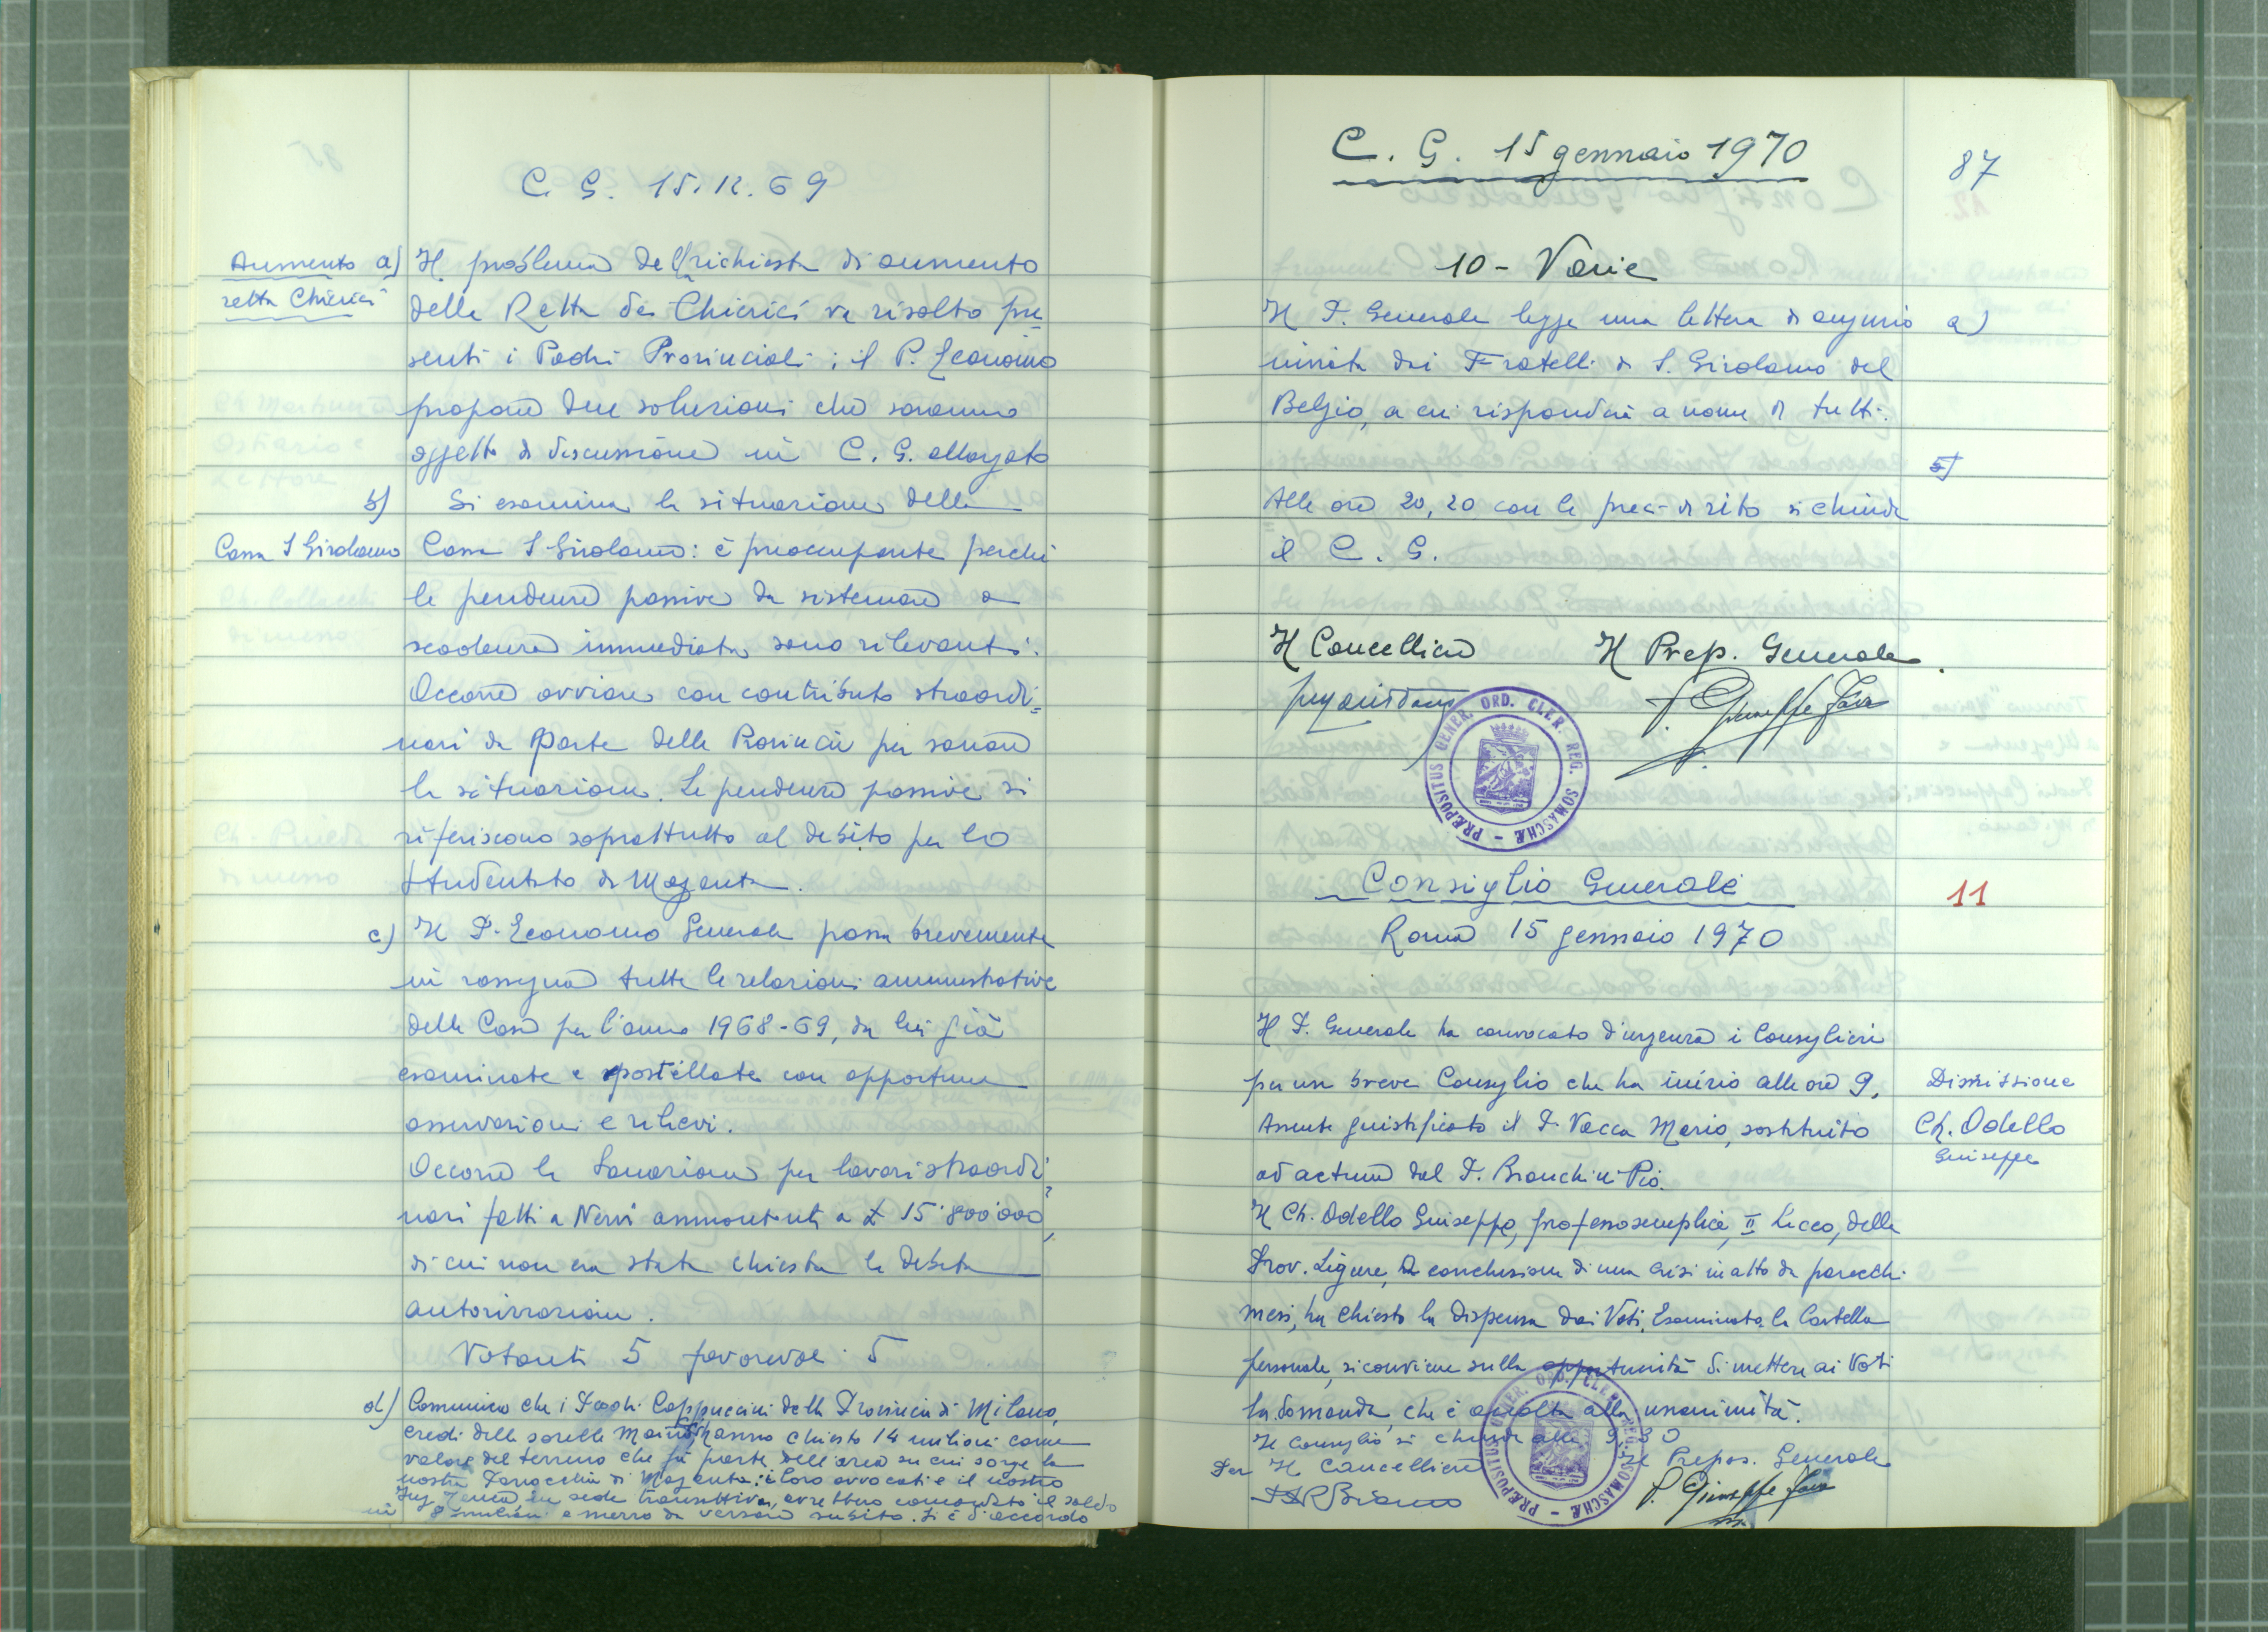 C. G. 15.12.69
Aumento retta Chierici
a) Il problema della richiesta di aumento
della Retta dei Chierici va risolto pre
senti i Padri Provinciali: il P. Economo
propone due soluzioni che saranno
oggetto di discussione in C. G. allargato
b) Si esamina la situazione della
Cassa S Girolamo
Cassa S. Girolamo: è preoccupante perché
le pendenze passive da sistemare a
scadenza immediata sono rilevanti.
Occorre ovviare con contributo straordi=
nari da Parte delle Provincie per sanare
la situazione. Le pendenze passive si
riferiscono soprattutto al debito per lo
Studentato di Magenta.
c) Il P. Economo Generale passa brevemente
in rassegna tutte le relazioni amministrative
delle Case per l'anno 1968-69, da lui già
esaminate e postillate con opportune
osservazioni e rilievi.
Occorre la Sanazione per lavori straordi
nari fatti a Nervi ammontanti a £ 15'800'000,
di cui non era stata chiesta la debita
autorizzazione.
Votanti 5 favorevoli 5
d) Comunica che i Padri Cappuccini della Provincia di Milano,
eredi delle sorelle Maino hanno chiesto 14 milioni come
valore del terreno che fa parte dell'area su cui sorge la
nostra Parrocchia di Magenta: i loro avvocati e il nostro
Ing. in sede transattiva, avrebbero concordato il saldo
in 8 milioni e mezzo da versare subito. Si è d'accordo
C. G. 15 gennaio 1970
87
10 - Varie
Il P. Generale legge una lettera di augurio a)
inviata dai Fratelli di S. Girolamo del
Belgio, a cui risponderà a nome di tutti.
b)
Alle ore 20,20 con le preci di rito si chiude
il C. G.
Il Cancelliere Il Prep. Generale
P. Giuseppe Fava
PRÆPOSITUS GENER. ORD. CLER. REG. SOMASCHÆ
Consiglio Generale
11
Roma 15 gennaio 1970
Il P. Generale ha convocato d'urgenza i Consiglieri
per un breve Consiglio che ha inizio alle ore 9.
Dimissione
Ch. Odello
Giuseppe
Assente giustificato il P. Vacca Mario, sostituito
ad actum dal P. Bianchini Pio.
Il Ch. Odello Giuseppe, professo semplice, II Liceo, della
Prov. Ligure, a conclusione di una crisi in atto da parecchi
mesi, ha chiesto la dispensa dai Voti. Esaminata la Cartella
personale, si conviene sulla opportunità di mettere ai Voti
la domanda, che è accolta alla unanimità.
Il Consiglio si chiude alle 9,30
Per Il Cancelliere Il Prepos. Generale
P. Giuseppe Fava
PRÆPOSITUS GENER. ORD. CLER. REG. SOMASCHÆ